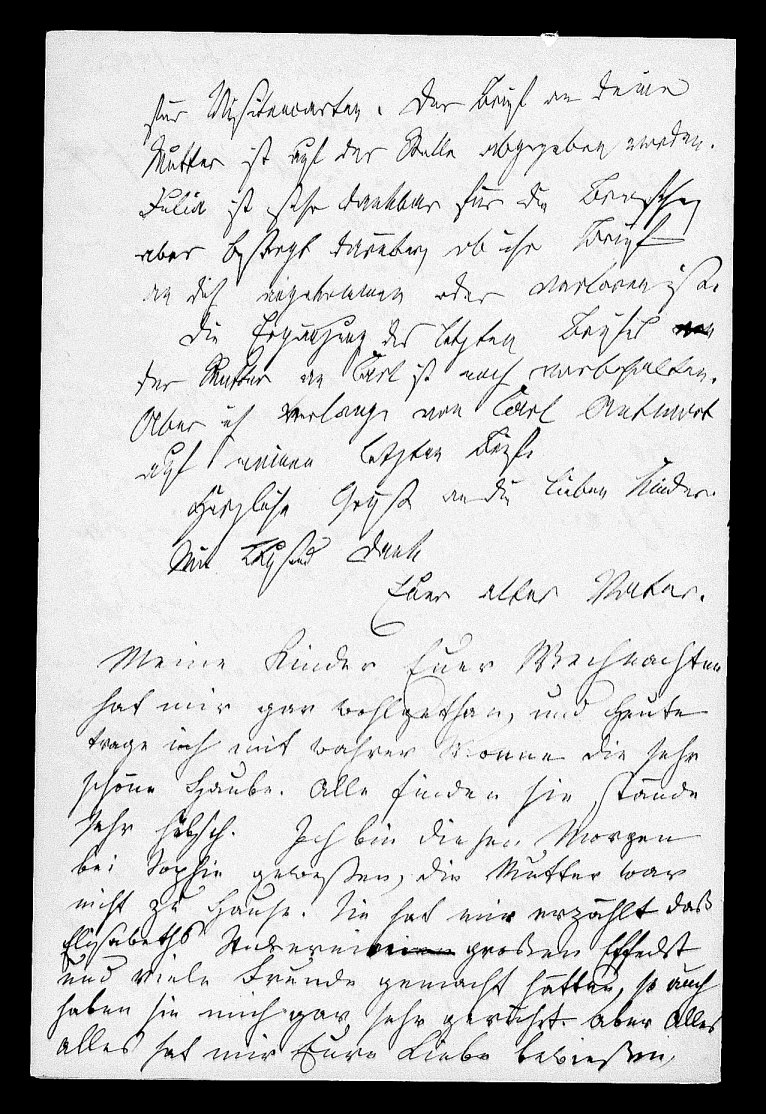 für Visitencarten. Der Brief an deine
Mutter ist auf der Stelle abgegeben worden.
Julia ist sehr dankbar für die
aber besorgt darüber, ob ihr Brief
an dich angekommen oder verloren ist.
Die Ergänzung des letzten Briefes
der Mutter an Carl ist noch vorbehalten.
Aber ich verlange von Carl Antwort
auf meinen letzten Brief.
Herzliche Grüße an die lieben Kinder.
Mit Tausend Dank
Euer alter Vater.
Meine Kinder Euer Weihnachten
hat mir gar wohlgethan, und heute
trage ich mit wahrer Wonne die sehr
schöne Haube. Alle finden sie stände
sehr hübsch. Ich bin diesen Morgen
bei Sophie geweßen, die Mutter war
nicht zu Hause. Sie hat mir erzählt daß
Elisabeths Stickereien großen Effeckt
und viele Freude gemacht hätten, so auch
haben sie mich gar sehr gerührt. Aber Alles
alles hat mir Eure Liebe bewießen,